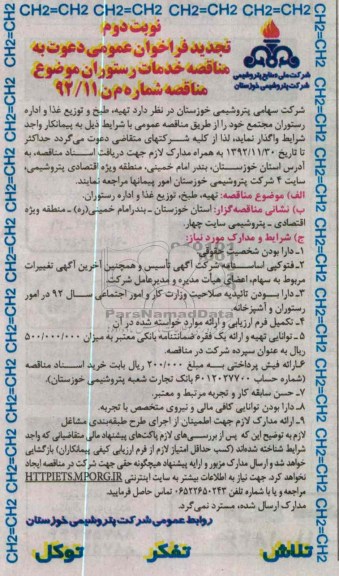 CH2=CH2 CH2=CH2 CH2=CH2 CH2=CH2 CH2=CH2 CH2=CH2
نوبت دوم
تجدید فراخوان عمومی دعوت به
مناقصه خدمات رستوران موضوع
مناقصه شماره م‌ن ۹۲/۱۱
شرکت ملی صنایع پتروشیمی
شرکت پتروشیمی خوزستان
شرکت سهامی پتروشیمی خوزستان در نظر دارد تهیه، طبخ و توزیع غذا و اداره
رستوران مجتمع خود را از طریق مناقصه عمومی با شرایط ذیل به پیمانکار واجد
شرایط واگذار نماید، لذا از کلیه شرکتهای متقاضی دعوت می‌گردد حداکثر
تا تاریخ ۱۳۹۲/۱۱/۳۰ به همراه مدارک لازم جهت دریافت اسناد مناقصه، به
آدرس استان خوزستان، بندر امام خمینی، منطقه ویژه اقتصادی پتروشیمی،
سایت ۴ شرکت پتروشیمی خوزستان امور پیمانها مراجعه نمایند.
الف) موضوع مناقصه: تهیه، طبخ، توزیع غذا و اداره رستوران.
ب) نشانی مناقصه‌گزار: استان خوزستان ـ بندرامام خمینی(ره) ـ منطقه ویژه
اقتصادی ـ پتروشیمی سایت چهار.
ج) شرایط و مدارک مورد نیاز:
۱ـ دارا بودن شخصیت حقوقی
۲ـ فتوکپی اساسنامه شرکت آگهی تأسیس و همچنین آخرین آگهی تغییرات
مربوط به سهام، اعضای هیأت مدیره و مدیرعامل شرکت
۳ـ دارا بودن تائیدیه صلاحیت وزارت کار و امور اجتماعی سال ۹۲ در امور
رستوران و آشپزخانه
ParsNamadData
۴ـ تکمیل فرم ارزیابی و ارائه موارد خواسته شده در آن
۵ـ توانایی تهیه و ارائه یک فقره ضمانتنامه بانکی معتبر به میزان ۵۰۰/۰۰۰/۰۰۰
ریال به عنوان سپرده شرکت در مناقصه.
۶ـ ارائه فیش پرداختی به مبلغ ۲۰۰/۰۰۰ ریال بابت خرید اسناد مناقصه
(شماره حساب ۶۰۱۲۰۲۷۷۰۰ بانک تجارت شعبه پتروشیمی خوزستان).
۷ـ حسن سابقه کار و تجربه مرتبط و معتبر.
۸ـ دارا بودن توانایی کافی مالی و نیروی متخصص با تجربه.
۹ـ ارائه مدارک لازم جهت اطمینان از اجرای طرح طبقه‌بندی مشاغل
لازم به توضیح این که پس از بررسی‌های لازم پاکت‌های پیشنهاد مالی متقاضیانی که واجد
شرایط شناخته شده‌اند (کسب حداقل امتیاز لازم از فرم ارزیابی کیفی پیمانکاران) بازگشایی
خواهد شد و ارسال مدارک مزبور و ارایه پیشنهاد هیچگونه حقی جهت شرکت در مناقصه ایجاد
نخواهد کرد. جهت نیاز به اطلاعات بیشتر به سایت اینترنتی HTTPIETS.MPORG.IR
مراجعه و یا با شماره تلفن ۰۶۵۲۲۶۵۰۲۴۳ تماس حاصل فرمایید.
مدارک ارسال شده، مسترد نمی‌گردد.
روابط عمومی شرکت پتروشیمی خوزستان
تلاش تفکر توکل